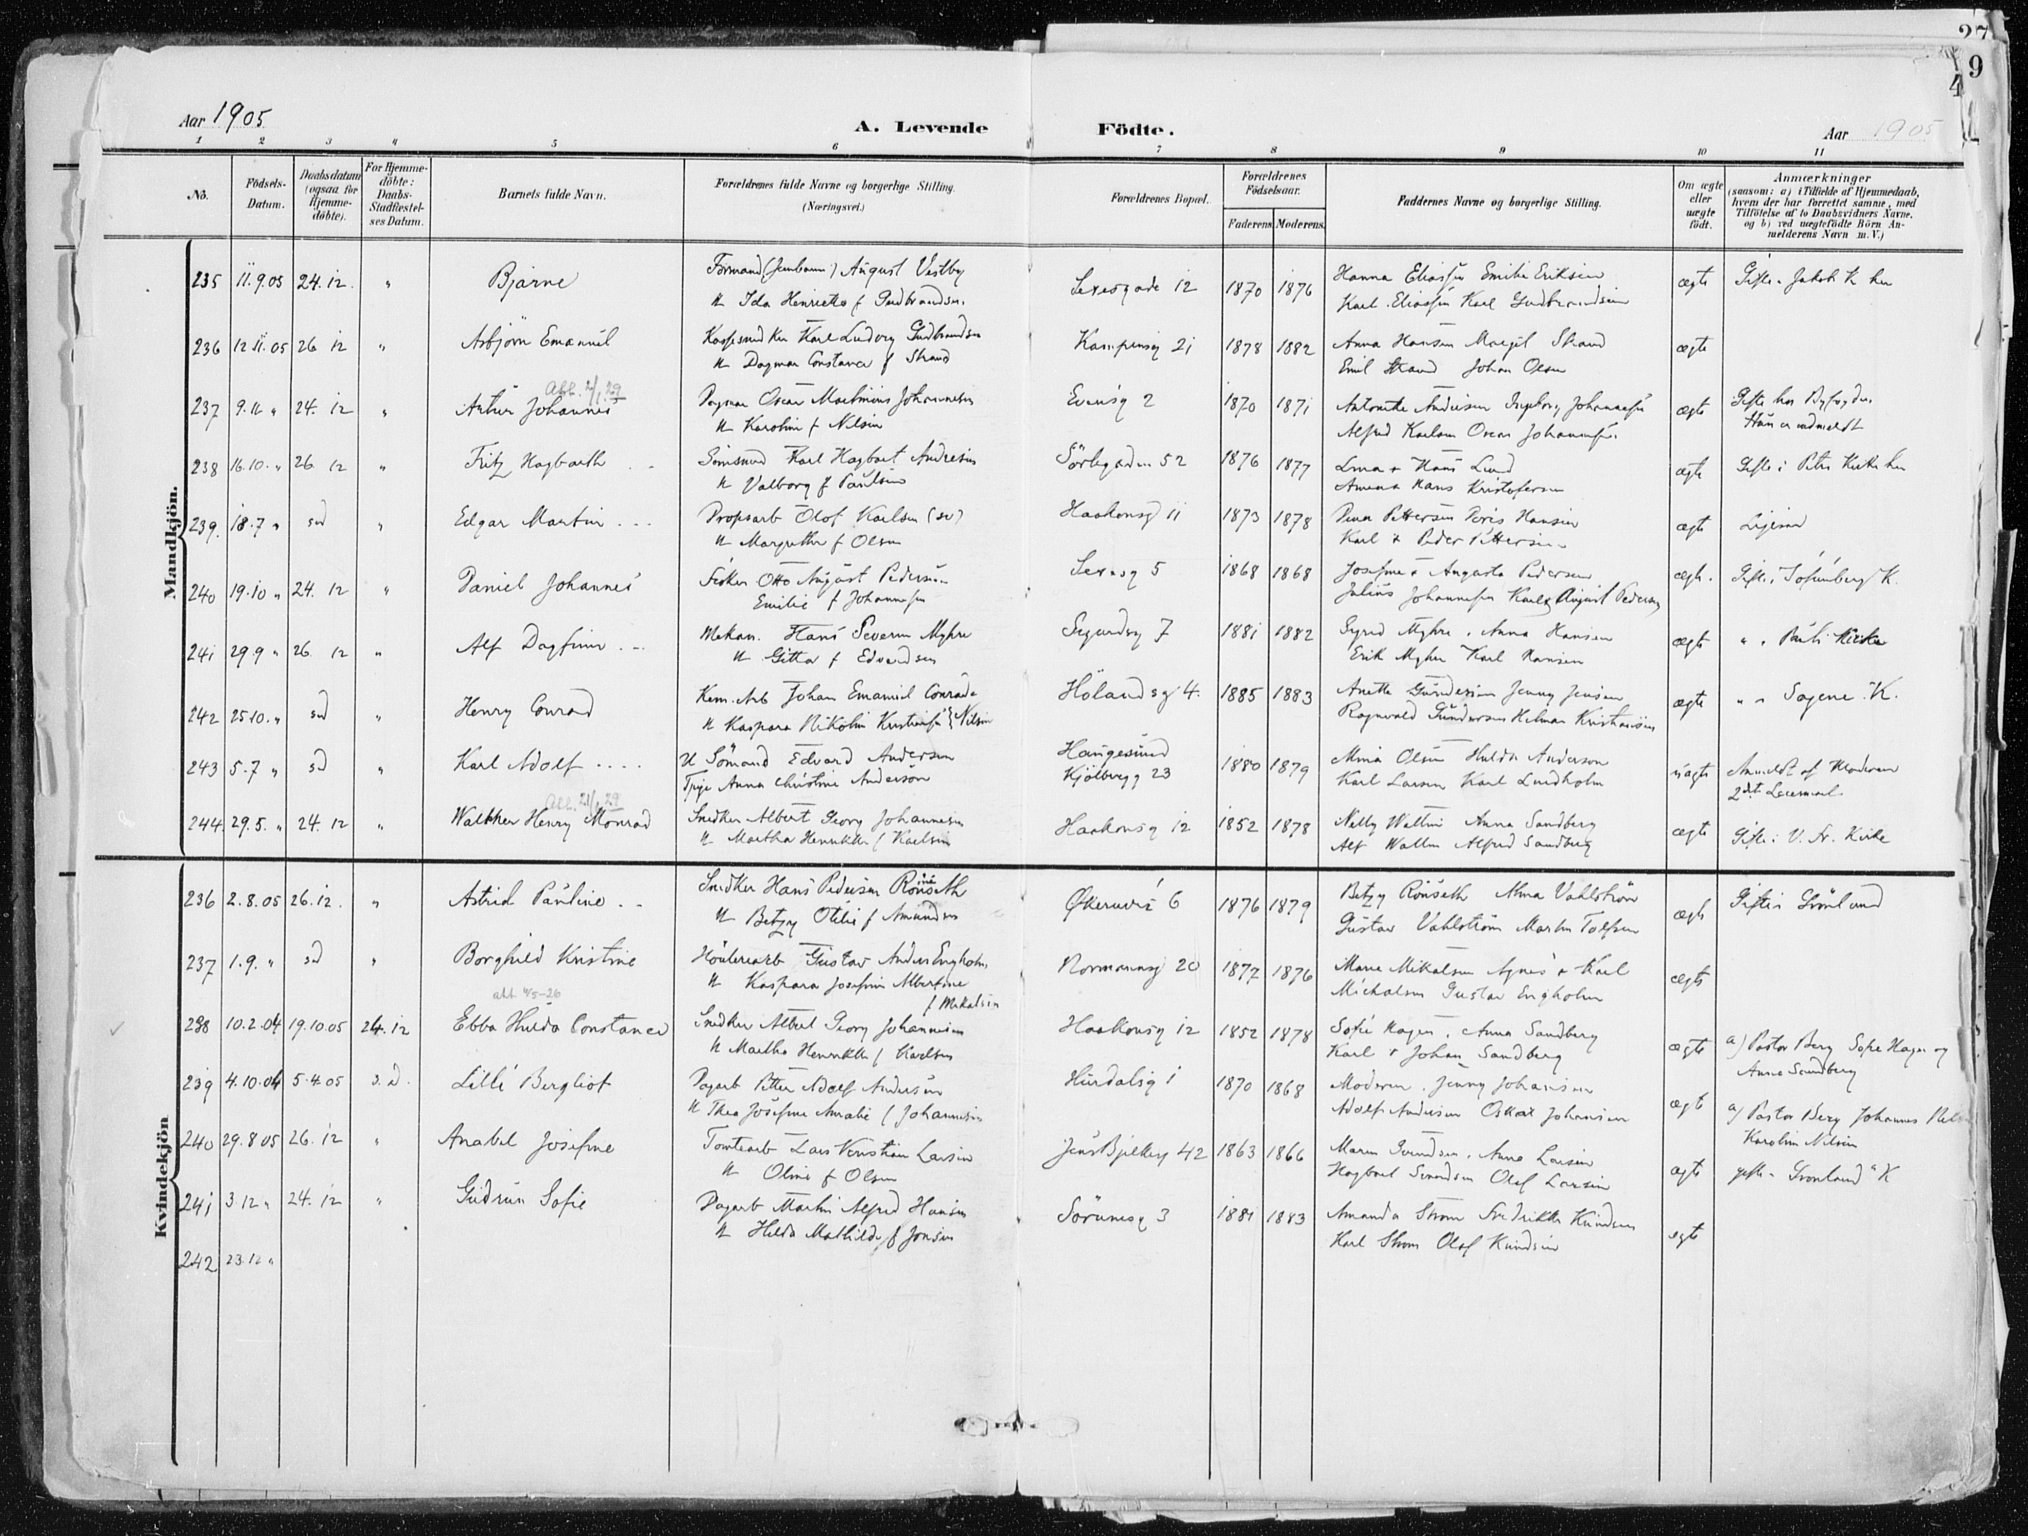 27
49
Aar 1905
A. Levende Födte.
Aar 1905
1 2 3 4 5 6 7 8 9 10 11
No.
Födsels-Datum.
Daabsdatum (ogsaa for Hjemme-döbte).
For Hjemme-döbte: Daabs-Stadfæstel-ses Datum.
Barnets fulde Navn.
Forældrenes fulde Navne og borgerlige Stilling. (Næringsvei.)
Forældrenes Bopæl.
Forældrenes Födselsaar.
Faderens. Moderens.
Faddernes Navne og borgerlige Stilling.
Om ægte eller uægte födt.
Anmærkninger
(saasom: a) i Tilfælde af Hjemmedaab,
hvem der har forrettet samme, med
Tilföielse af to Daabsvidners Navne.
og b) ved uægtefödte Börn An-
melderens Navn m. V.)
Mandkjön.
235 11.9.05 24.12. " Bjarne Formand August Vestby Lexesgade 12 1870 1876 Hanna Eliassen Emilie Eriksen ægte Gifte i Jakob K her
u Ida Henriette f Gudbrandsen. Karl Eliassen Karl Gudbrandsen
236 12.11.05 26 12 " Asbjörn Emanuel Karl Ludvig Gudbrandsen Kampensg 21 1878 1882 Anna Hansen Margit Strand ægte
u Dagmar Constance f Strand Emil Strand Johan Olsen
Abb. 2/1 29
237 9.11 " 24. 12 " Artur Johannes Oscar Martinius Johannesen Evensg 2 1870 1871 Antonette Andersen Ingeborg Johannessen ægte Gifte hos Byfogden
u Karoline f Nilsen Alfred Karlsen Oscar Johannessen. Hun er udmeldt
238 16.10. " 26 12 " Fritz Hagbarth Karl Hagbart Andresen Sörligaden 52 1876 1877 Lina & Hans Lund ægte Gifte i Petri Kirke her
u Valborg f Paulsen Hans Kristofersen
239. 18.7 " sd " Edgar Martin Propsarb Olof Karlsen (sv) Haakonsg 11 1873 1878 Petersen Hansen ægte
u Margrethe f Olsen Karl & Peder Pettersen
240 19.10 " 24. 12 " Daniel Johannes Otto August Pedersen Lexesg 5 1868 1868 Josefine & Augusta Pedersen ægte. Gifte i "Sofienberg" K.
Emilie f Johannessen Julius Johannessen Karl & August Pedersen
241 29.9 " 26. 12 " Alf Dagfinn Mekan. Hans Severin Myhre Sigurdsg 7 1881 1882 Sigrid Myhre. Anna Hansen ægte " " Pauls Kirke
u Gitta f Edvardsen Erik Myhre Karl Hansen
242 25.10. " sd " Henry Conrad Kem. Arb Johan Emanuel Conrad Hölandsg 4. 1885 1883 Anette Gundersen Jenny Jensen ægte " " Sagene K.
u Kaspara Nikoline Kristensen f Nilsen Ragnvald Gundersen Hilmar Kristiansen
243 5.7 " sd " Karl Adolf U Sömand Edvard Andersen Haugesund 1880 1879 Mina Olsen Hulda Anderson uægte Anmeldt af Moderen
Tpige Anna Christine Anderson Kjölbergg 23 Karl Larsen Karl Lundholm 2det Leiermaal
Abb. 21/1 29
244. 29.5. " 24. 12 " Walther Henry Monrad Snedker Albert Georg Johannesen Haakonsg 12 1852 1878 Nelly Wallin Anna Sandberg ægte Gifte i V. Fr. Kirke
u Martha Henrikke f Karlsen Alf Wallin Alfred Sandberg
Kvindekjön
236 2.8.05 26.12. " Astrid Pauline Snedker Hans Pedersen Rönseth Økernveis 6 1876 1879 Betzy Rönseth Alma Vahlström ægte Gifte i Grönland
u Betzy Otilie f Amundsen Gustav Vahlström Martin Tollefsen
237 1.9. " sd " Borghild Kristine Höuleriarb Gustav Anders Engholm Normannsg 20 1877 1876 Marie Mikalsen Agnes & Karl ægte
u Kaspara Josefine Albertine f Mikalsen Michalsen Gustav Engholm
att 4/5-26
238 10.2.04 19.10.05 24.12 Ebba Hulda Constance Snedker Albert Georg Johannesen Haakonsg 12 1852 1878 Sofie Hagen. Anna Sandberg ægte a) Pastor Berg Sofie Hagen og
u Martha Henrikke f Karlsen Karl & Johan Sandberg Anna Sandberg
239 4.10.04 5.4.05 s.d. Lilli Bergliot Dagarb Petter Adolf Andersen Hurdalsg 1 1870 1868 Moderen. Jenny Johansen ægte a) Pastor Berg Johannes
u Thea Josefine Amalie f Johannesen Adolf Andersen Oskar Johansen Karoline Nilsen
240 29.8.05 26.12 " Anabel Josefine Tomtearb Lars Kristian Larsen Jens Bjelkesg 42 1863 1866 Maren Svendsen. Anna Larsen ægte gifte i Grønland's K
u Oline f Olsen Hagbart Svendsen Olaf Larsen
241 3.12 " 24. 12 " Gudrun Sofie Dagarb Martin Alfred Hansen Sörumsg 3 1881 1883 Amanda Strøm Fredrikke Knudsen egte
u Hilda Mathilde f Jensen Karl Strøm Olaf Knudsen
242 23.12 "